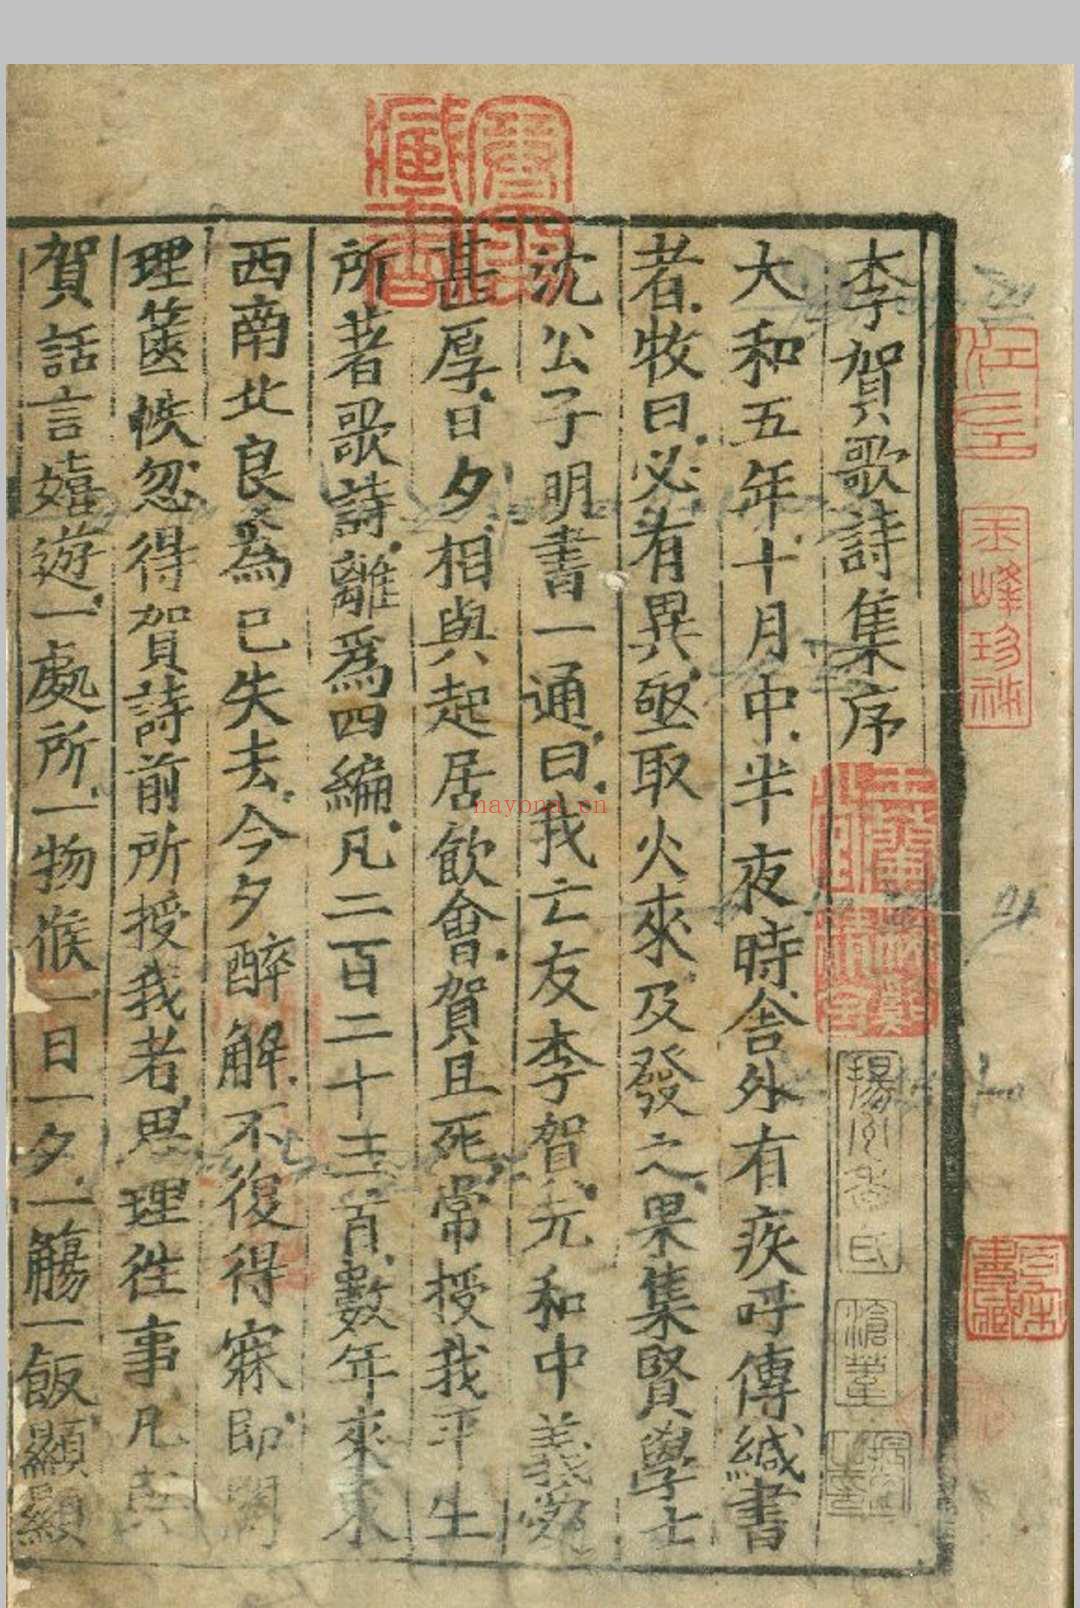 李賀歌詩集序
大和五年十月中半夜時舍外有疾呼傳緘書
者牧曰必有異亟取火來及發之果集賢學士
沈公子明書一通曰我亡友李賀元和中義愛
甚厚日夕相與起居飲會賀且死常授我平生
所著歌詩離爲四編凡二百二十三首數年來東
西南北良為已失去今夕醉解不復得寐即閱
理篋帙忽得賀詩前所授我者思理往事凡與
賀話言嬉遊一處所一物候一日一夕一觴一飯顯顯
玉峰珍秘
滄葦
nayona.cn